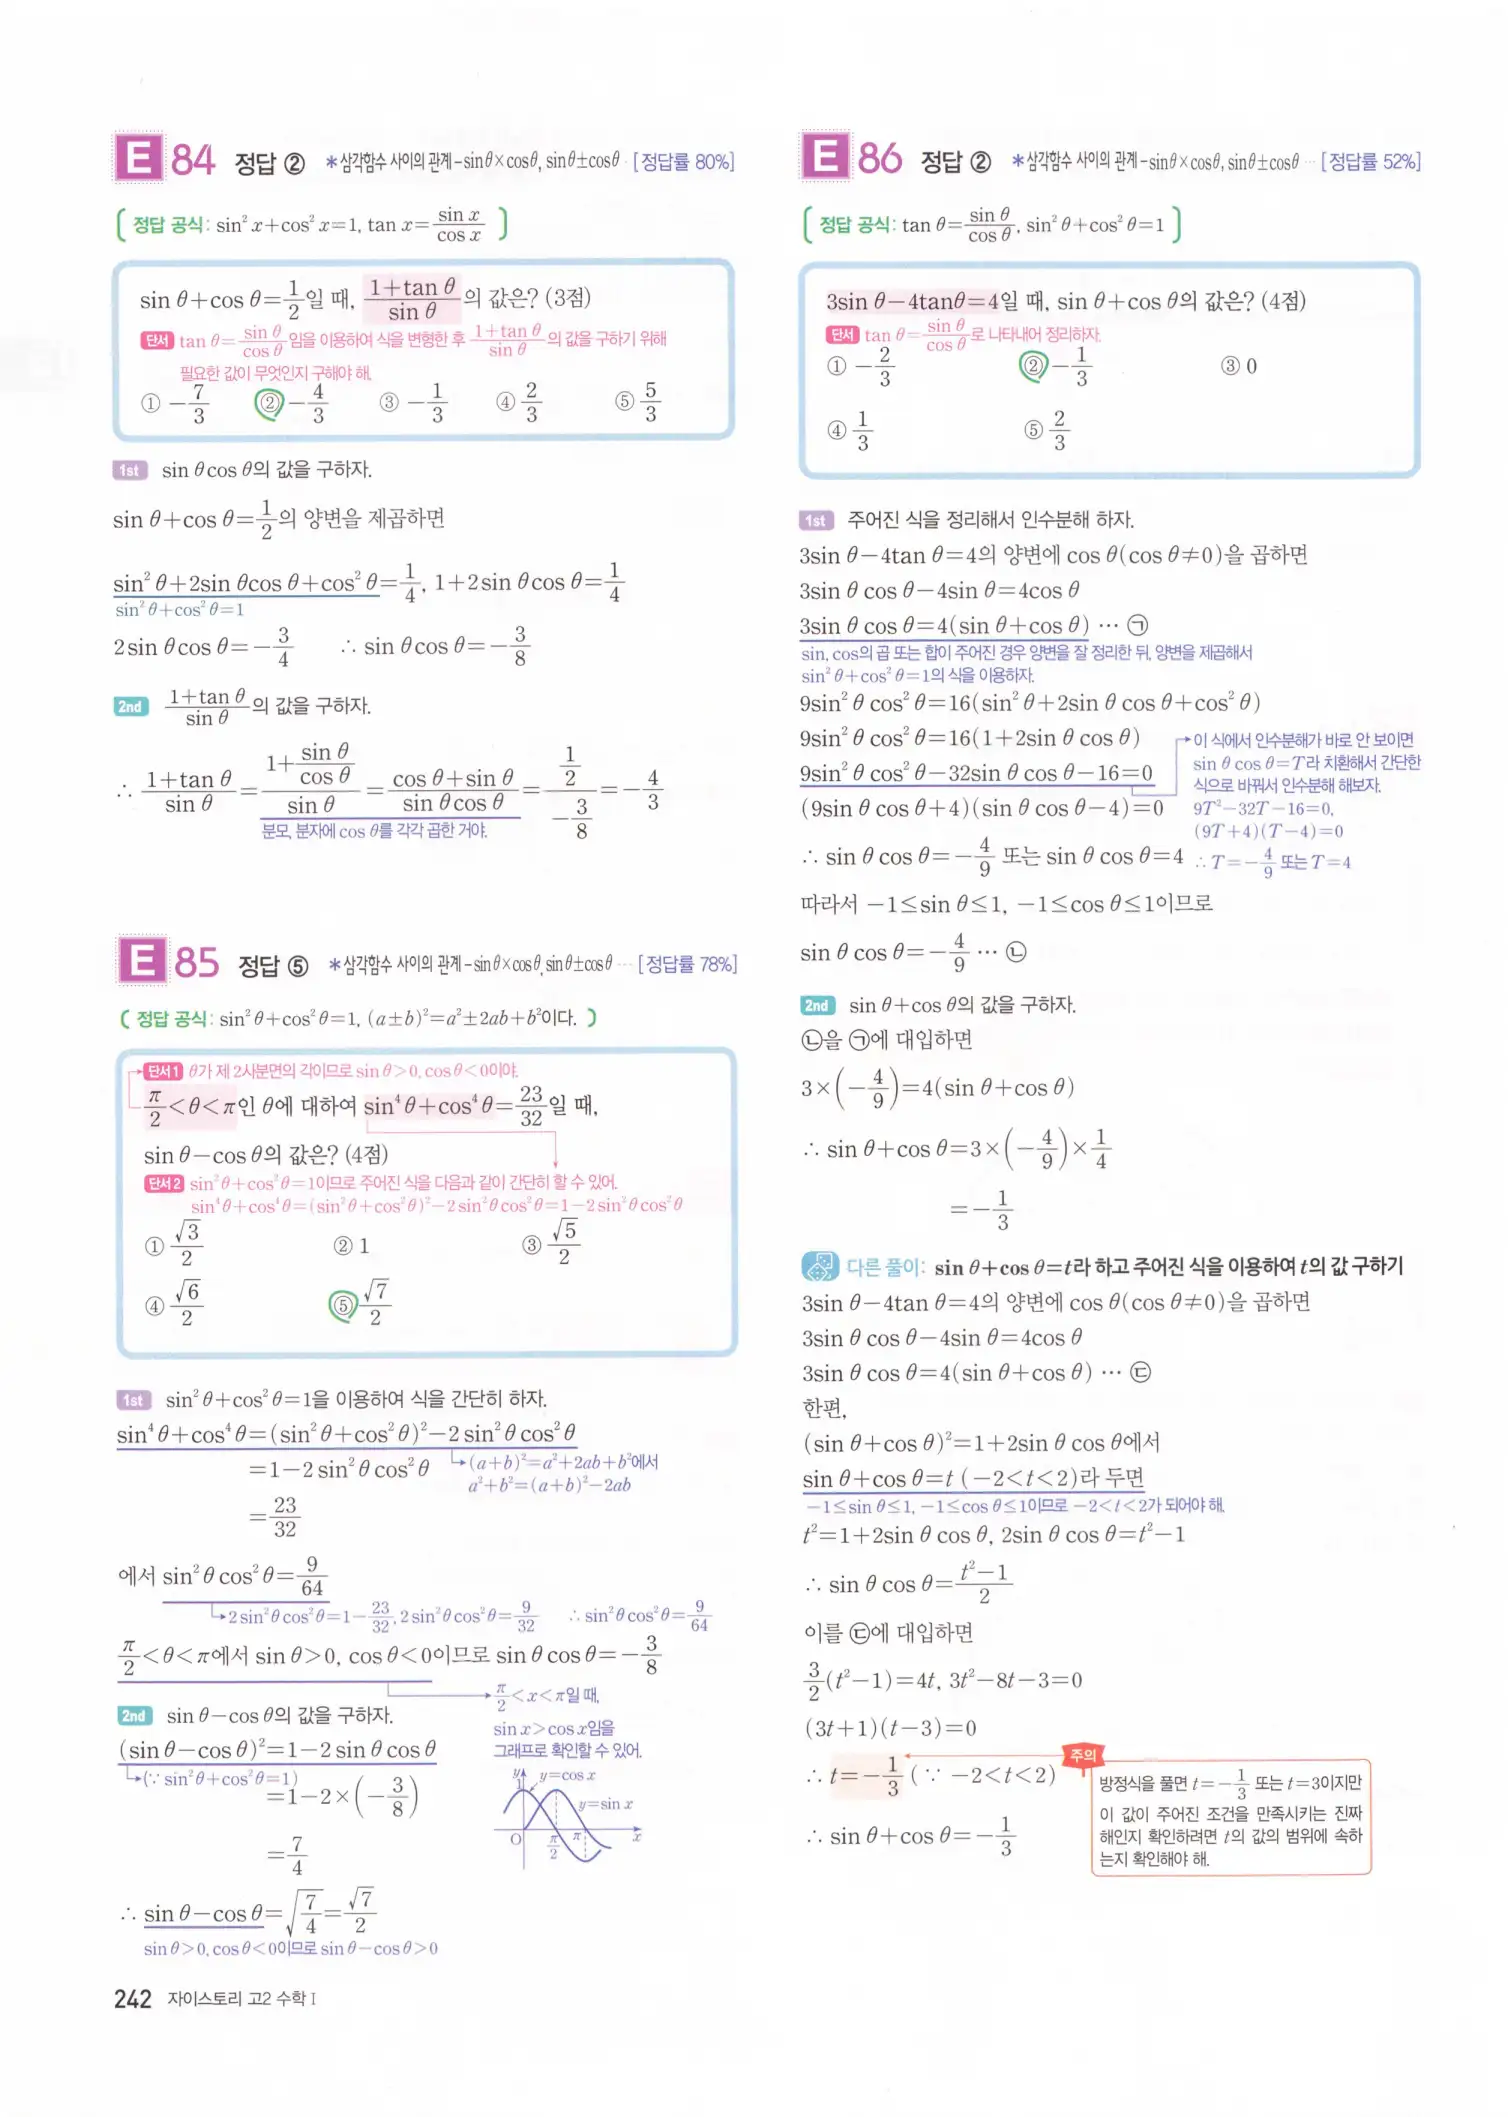 E 84 정답 ② *삼각함수 사이의 관계-sinθ×cosθ, sinθ±cosθ [정답률 80%]
( 정답 공식: sin² x+cos² x=1, tan x=sin x/cos x )
sin θ+cos θ=1/2일 때, (1+tan θ)/sin θ의 값은? (3점)
단서 tan θ=sin θ/cos θ임을 이용하여 식을 변형한 후 (1+tan θ)/sin θ의 값을 구하기 위해
필요한 값이 무엇인지 구해야 해.
① -7/3 ② -4/3 ③ -1/3 ④ 2/3 ⑤ 5/3
1st sin θcos θ의 값을 구하자.
sin θ+cos θ=1/2의 양변을 제곱하면
sin² θ+2sin θcos θ+cos² θ=1/4, 1+2sin θcos θ=1/4
sin² θ+cos² θ=1
2sin θcos θ=-3/4 ∴ sin θcos θ=-3/8
2nd (1+tan θ)/sin θ의 값을 구하자.
∴ (1+tan θ)/sin θ=(1+sin θ/cos θ)/sin θ=(cos θ+sin θ)/(sin θcos θ)=(1/2)/(-3/8)=-4/3
분모, 분자에 cos θ를 각각 곱한 거야.
E 85 정답 ⑤ *삼각함수 사이의 관계-sinθ×cosθ, sinθ±cosθ ··· [정답률 78%]
( 정답 공식: sin² θ+cos² θ=1, (a±b)²=a²±2ab+b²이다. )
단서1 θ가 제 2사분면의 각이므로 sin θ>0, cos θ<0이야.
π/2<θ<π인 θ에 대하여 sin⁴ θ+cos⁴ θ=23/32일 때,
sin θ-cos θ의 값은? (4점)
단서2 sin² θ+cos² θ=1이므로 주어진 식을 다음과 같이 간단히 할 수 있어.
sin⁴ θ+cos⁴ θ=(sin² θ+cos² θ)²-2 sin² θcos² θ=1-2 sin² θcos² θ
① √3/2 ② 1 ③ √5/2
④ √6/2 ⑤ √7/2
1st sin² θ+cos² θ=1을 이용하여 식을 간단히 하자.
sin⁴ θ+cos⁴ θ=(sin² θ+cos² θ)²-2 sin² θ cos² θ
=1-2 sin² θ cos² θ (a+b)²=a²+2ab+b²에서
a²+b²=(a+b)²-2ab
=23/32
에서 sin² θ cos² θ=9/64
2 sin² θ cos² θ=1-23/32, 2 sin² θ cos² θ=9/32 ∴ sin² θ cos² θ=9/64
π/2<θ<π에서 sin θ>0, cos θ<0이므로 sin θ cos θ=-3/8
π/2<x<π일 때,
sin x>cos x임을
그래프로 확인할 수 있어.
y 1 y=cos x y=sin x O π/2 π x
2nd sin θ-cos θ의 값을 구하자.
(sin θ-cos θ)²=1-2 sin θ cos θ
(∵ sin² θ+cos² θ=1)
=1-2×(-3/8)
=7/4
∴ sin θ-cos θ=√(7/4)=√7/2
sin θ>0, cos θ<0이므로 sin θ-cos θ>0
242 자이스토리 고2 수학 I
E 86 정답 ② *삼각함수 사이의 관계-sinθ×cosθ, sinθ±cosθ ··· [정답률 52%]
( 정답 공식: tan θ=sin θ/cos θ, sin² θ+cos² θ=1 )
3sin θ-4tanθ=4일 때, sin θ+cos θ의 값은? (4점)
단서 tan θ=sin θ/cos θ로 나타내어 정리하자.
① -2/3 ② -1/3 ③ 0
④ 1/3 ⑤ 2/3
1st 주어진 식을 정리해서 인수분해 하자.
3sin θ-4tan θ=4의 양변에 cos θ(cos θ≠0)을 곱하면
3sin θ cos θ-4sin θ=4cos θ
3sin θ cos θ=4(sin θ+cos θ) ··· ㉠
sin, cos의 곱 또는 합이 주어진 경우 양변을 잘 정리한 뒤, 양변을 제곱해서
sin² θ+cos² θ=1의 식을 이용하자.
9sin² θ cos² θ=16(sin² θ+2sin θ cos θ+cos² θ)
9sin² θ cos² θ=16(1+2sin θ cos θ)
9sin² θ cos² θ-32sin θ cos θ-16=0
(9sin θ cos θ+4)(sin θ cos θ-4)=0
이 식에서 인수분해가 바로 안 보이면
sin θ cos θ=T라 치환해서 간단한
식으로 바꿔서 인수분해 해보자.
9T²-32T-16=0,
(9T+4)(T-4)=0
∴ T=-4/9 또는 T=4
∴ sin θ cos θ=-4/9 또는 sin θ cos θ=4
따라서 -1≤sin θ≤1, -1≤cos θ≤1이므로
sin θ cos θ=-4/9 ··· ㉡
2nd sin θ+cos θ의 값을 구하자.
㉡을 ㉠에 대입하면
3×(-4/9)=4(sin θ+cos θ)
∴ sin θ+cos θ=3×(-4/9)×1/4
=-1/3
다른 풀이: sin θ+cos θ=t라 하고 주어진 식을 이용하여 t의 값 구하기
3sin θ-4tan θ=4의 양변에 cos θ(cos θ≠0)을 곱하면
3sin θ cos θ-4sin θ=4cos θ
3sin θ cos θ=4(sin θ+cos θ) ··· ㉢
한편,
(sin θ+cos θ)²=1+2sin θ cos θ에서
sin θ+cos θ=t (-2<t<2)라 두면
-1≤sin θ≤1, -1≤cos θ≤1이므로 -2<t<2가 되어야 해.
t²=1+2sin θ cos θ, 2sin θ cos θ=t²-1
∴ sin θ cos θ=(t²-1)/2
이를 ㉢에 대입하면
3/2(t²-1)=4t, 3t²-8t-3=0
(3t+1)(t-3)=0
∴ t=-1/3 (∵ -2<t<2)
∴ sin θ+cos θ=-1/3
주의
방정식을 풀면 t=-1/3 또는 t=3이지만
이 값이 주어진 조건을 만족시키는 진짜
해인지 확인하려면 t의 값의 범위에 속하
는지 확인해야 해.